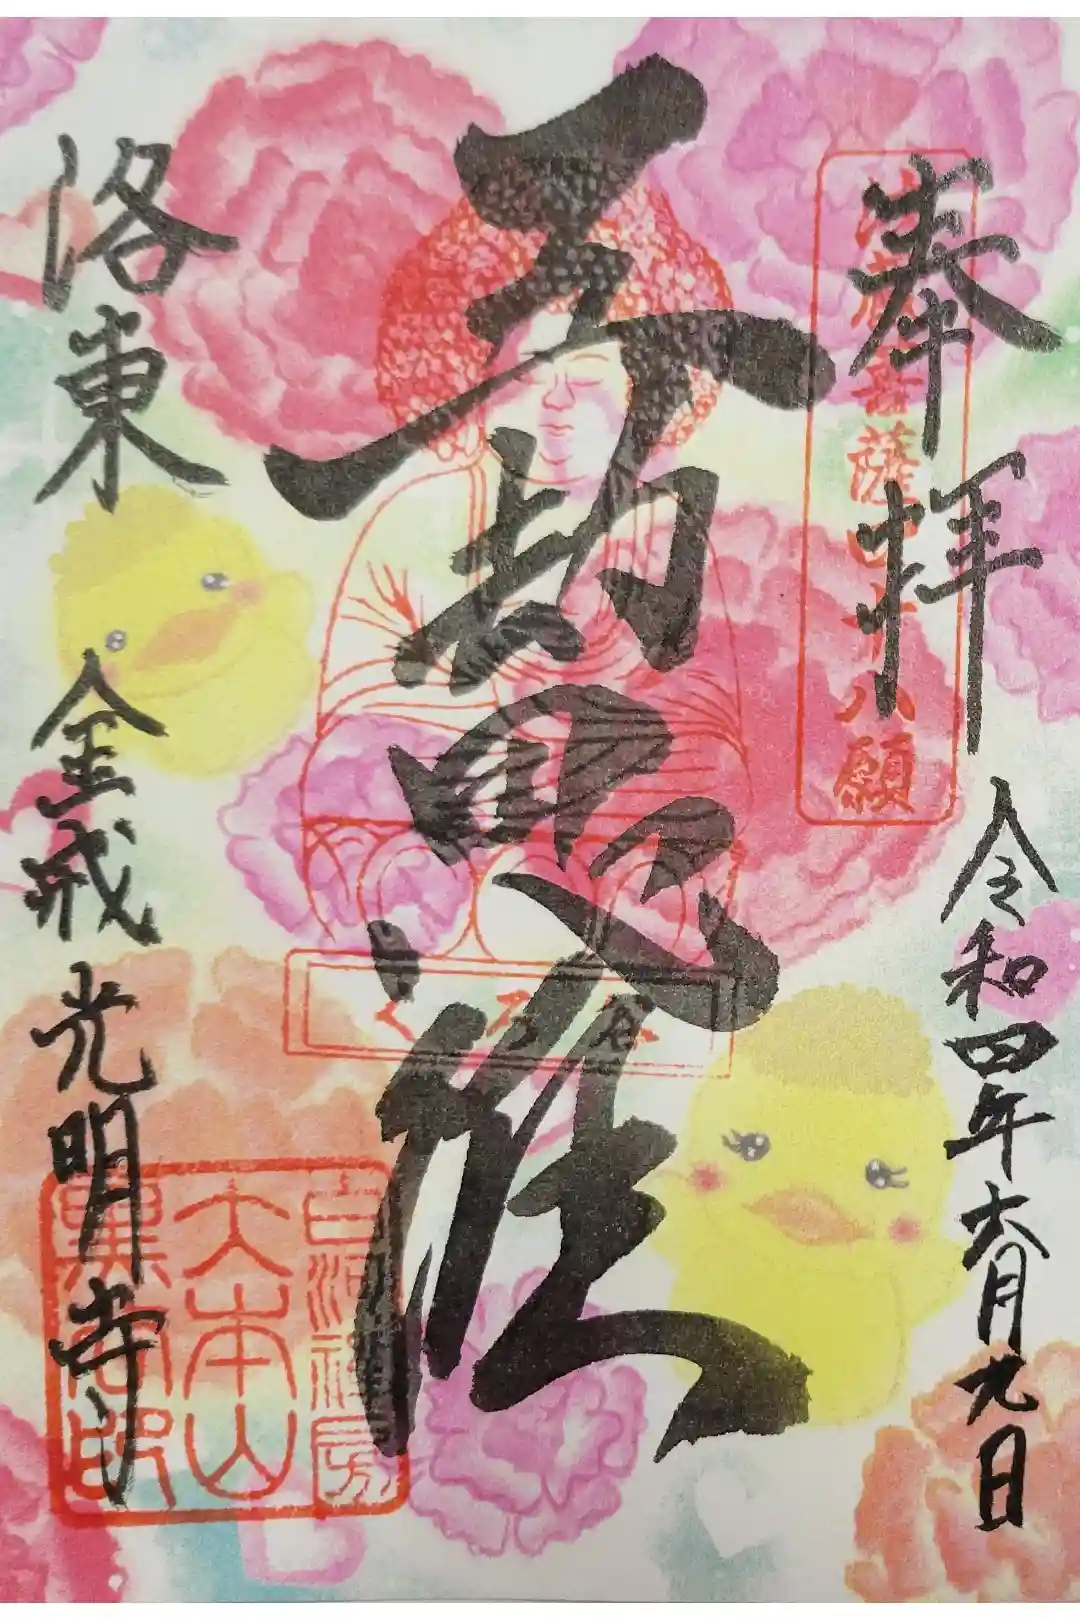 奉拝
令和四年六月九日
法蔵菩薩四十八願
五劫思惟
くろ谷
洛東
金戒光明寺
白河禅房
大本山
黒谷印